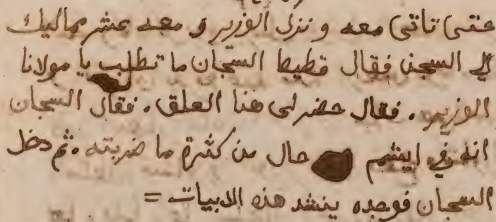 عتى تاتى معه ونزل الوزير و معه عشر مماليك
الى السجن فقال قطيط السجان ما تطلب يا مولانا
الوزير . فقال حضر لى هذا العلق . فقال السجان
انه فى ايشم حال من كثرة ما ضربته . ثم دخل
السجان فوجده ينشد هذه الابيات =